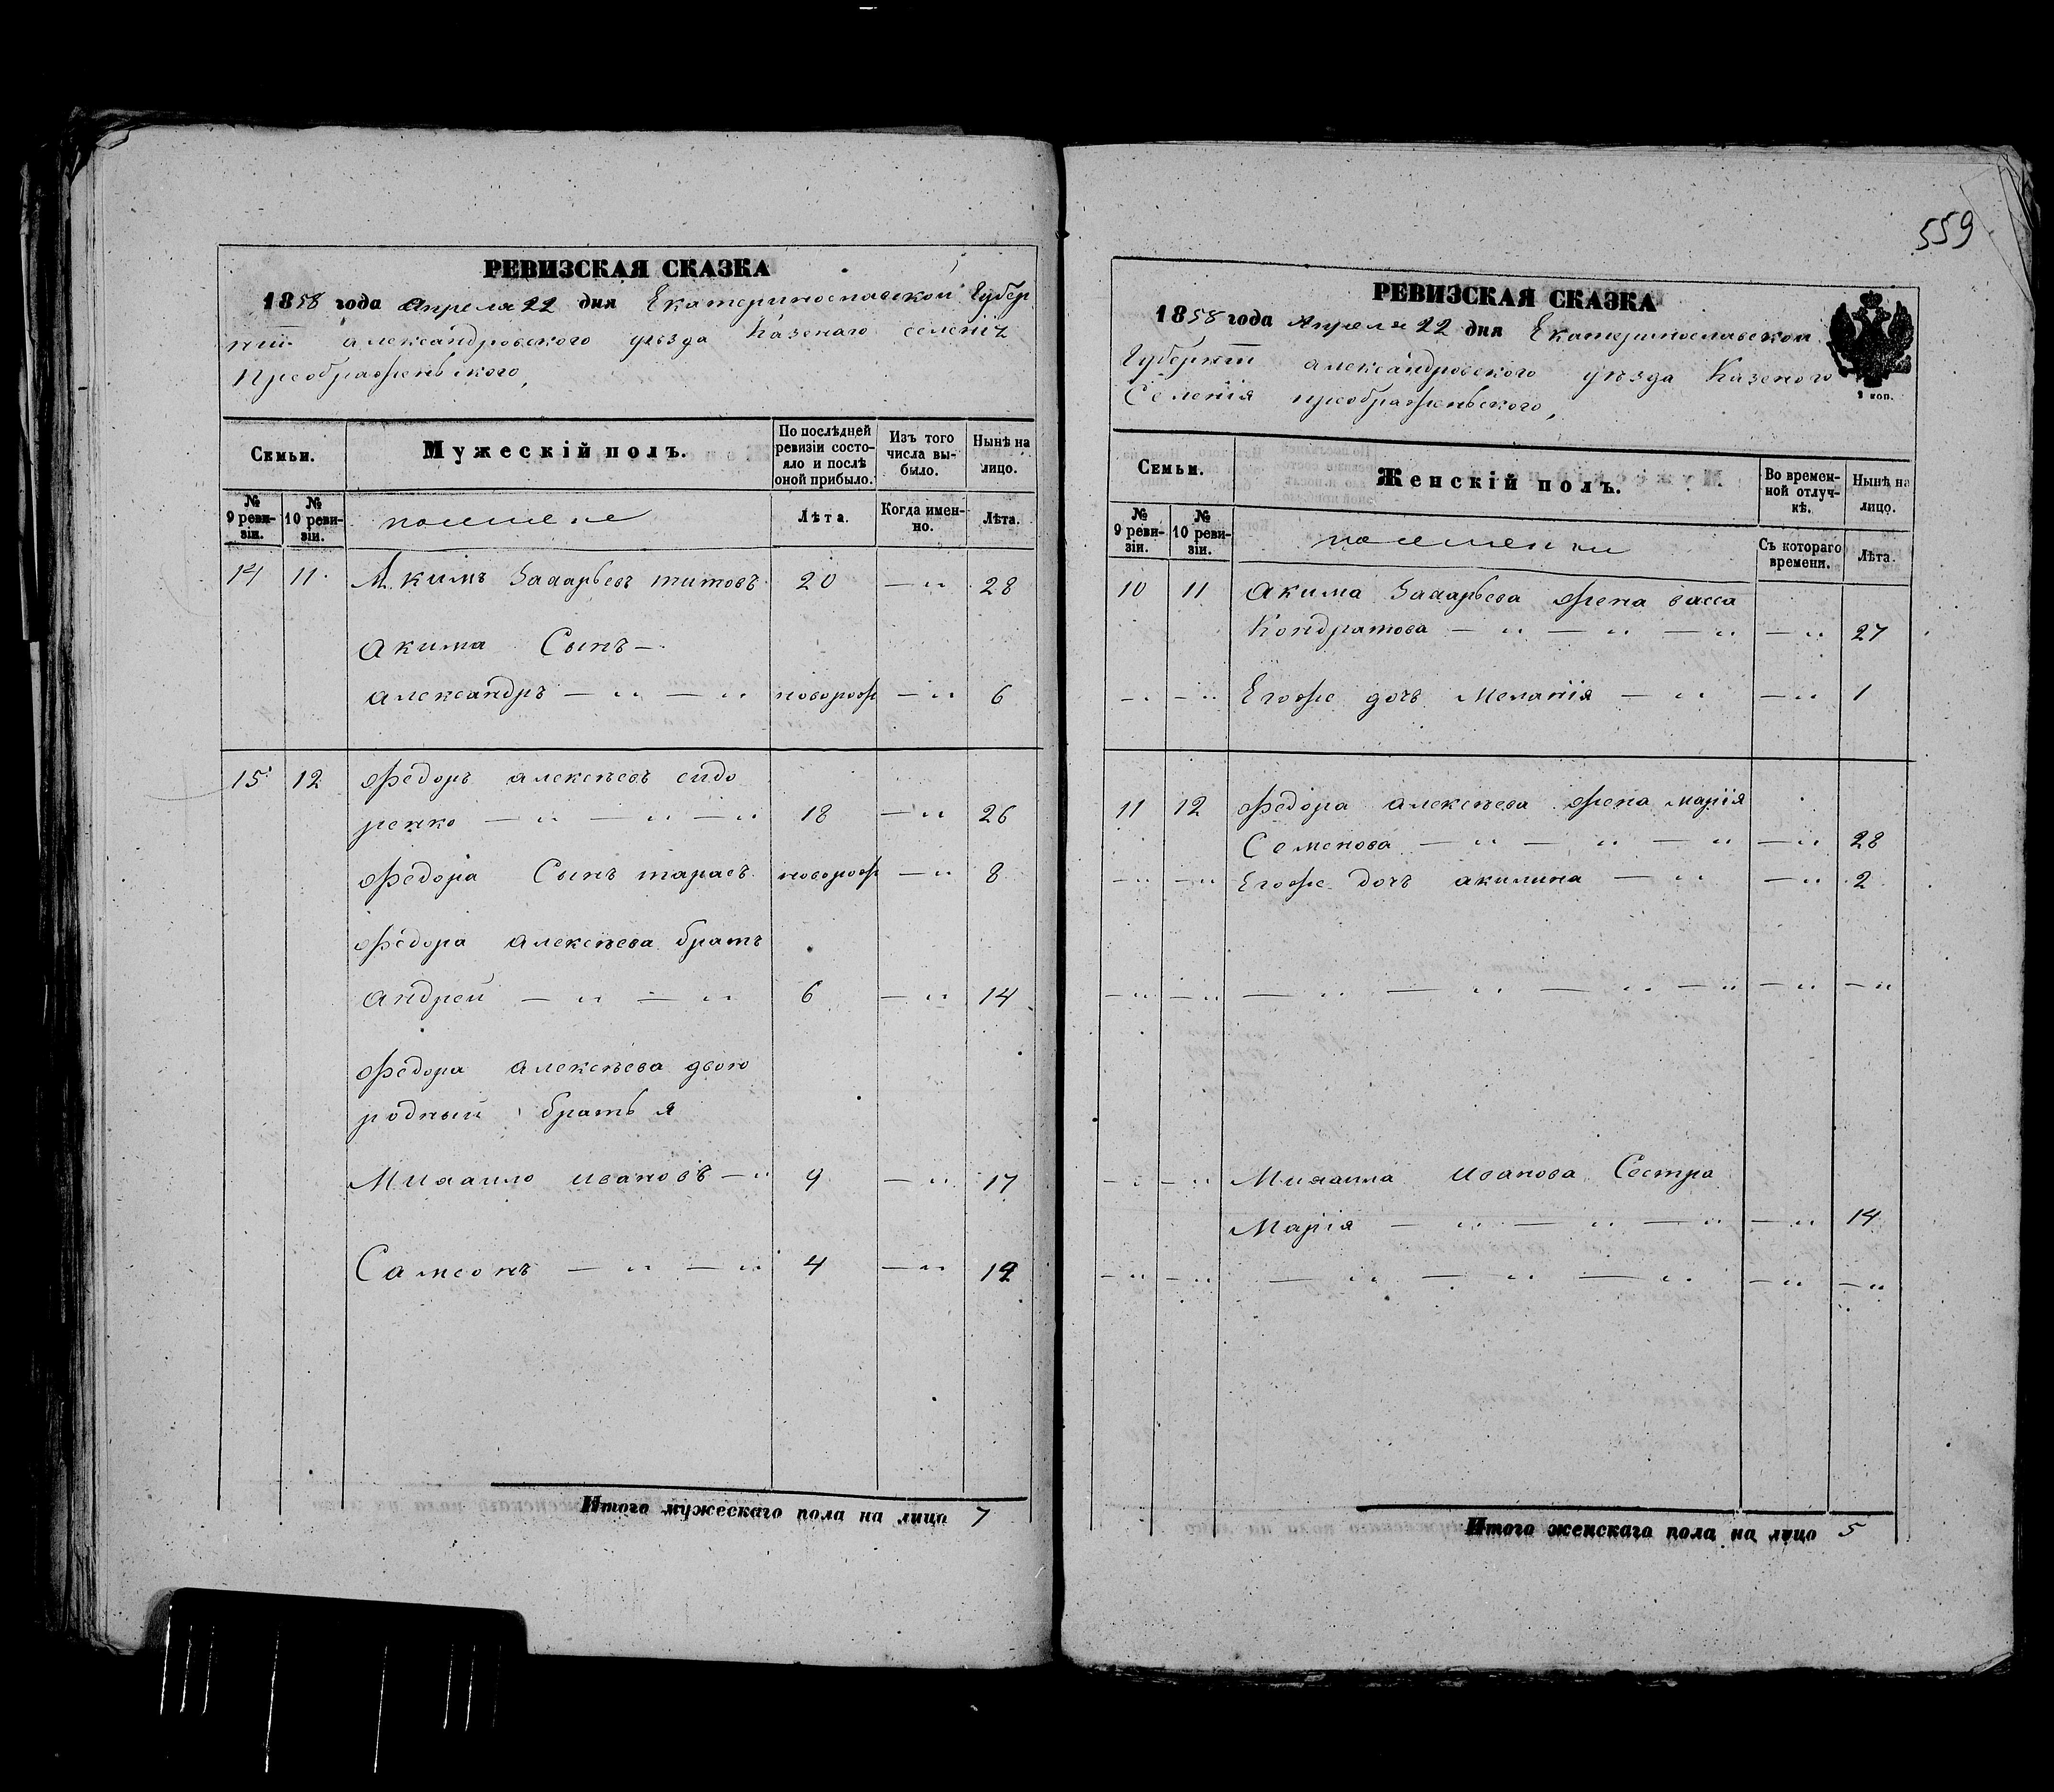 559
РЕВИЗСКАЯ СКАЗКА
1858 года Апреля 22 дня Екатеринослаской Губер
нии александровского уезда Казенаго селенія
Преображеньского,
Семьи. Мужескій полъ. По послѣдней ревизіи состояло и послѣ оной прибыло. Изъ того числа выбыло. Нынѣ на лицо.
№ 9 ревизіи. № 10 ревизіи. Лѣта. Когда именно. Лѣта.
14 11 Акимъ Захарьевъ титовъ 20 — " 28
Акима Сынъ —
александръ — " — " новорож — " 6
15 12 Федоръ алексѣевъ сидо
ренко — " — " — " 18 — " 26
Федора Сынъ тарасъ новорож — " 8
Федора алексѣева братъ
андрей — " — " 6 — " 14
Федора алексѣева двою
родный братья
Михаило ивановъ — " 9 — " 17
Самсонъ — " — " 4 — " 12
Итого мужескаго пола на лицо 7
РЕВИЗСКАЯ СКАЗКА
1858 года Апреля 22 дня Екатеринославской
Губернии александровского уѣзда Казеного
Селенія преображеньского,
1 коп.
Семьи. Женскій полъ. Во временной отлучкѣ. Нынѣ на лицо.
№ 9 ревизіи. № 10 ревизіи. Съ котораго времени. Лѣта.
10 11 Акима Захарьева жена васса
Кондратова — " — " — " — " 27
— " — " Егоже дочь Меланія — " — " 1
11 12 Федора алексѣева жена марія
Семенова — " — " — " — " 28
— " — " Егоже дочь акилина — " — " 2
— " — " — " — " — " — " — " — "
— " — " Михаила Иванова Сестра
Марія — " — " — " — " 14
— " — " — " — " — " — " — "
Итого женскаго пола на лицо 5